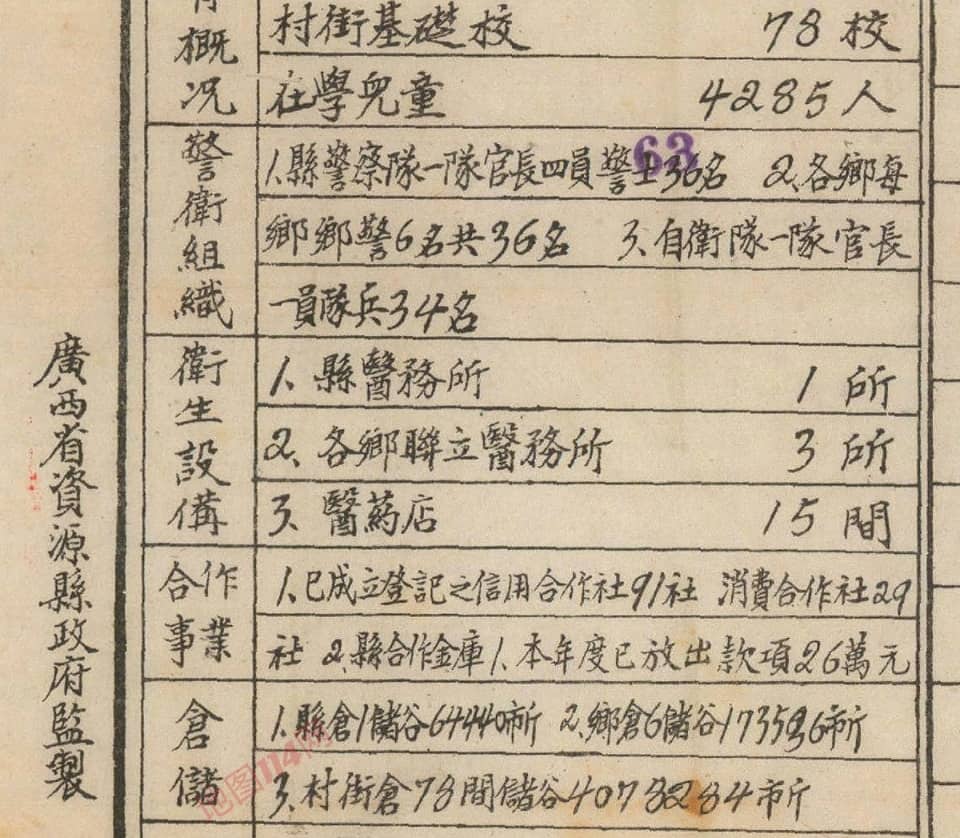 育概況
村街基礎校 78校
在學兒童 4285人
警衛組織
1.縣警察隊一隊官長四員警士36名 2.各鄉每
鄉鄉警6名共36名 3.自衛隊一隊官長
一員隊兵34名
衛生設備
1.縣醫務所 1所
2.各鄉聯立醫務所 3所
3.醫葯店 15間
合作事業
1.已成立登記之信用合作社91社 消費合作社29
社 2.縣合作金庫1.本年度已放出款項26萬元
倉儲
1.縣倉1儲谷64440市斤 2.鄉倉6儲谷173596市斤
3.村街倉78間儲谷4078284市斤
廣西省資源縣政府監製
63
地图114网